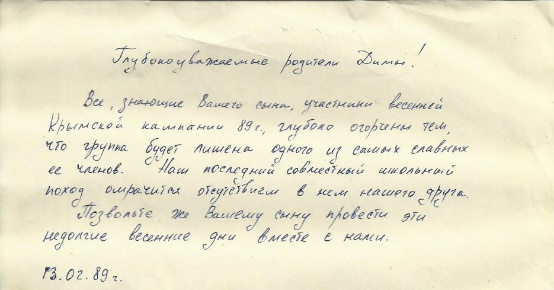 Глубокоуважаемые родители Димы!
Все, знающие Вашего сына, участники весенней
Крымской кампании 89г., глубоко огорчены тем,
что группа будет лишена одного из самых славных
ее членов. Наш последний совместный школьный
поход омрачится отсутствием в нем нашего друга.
Позвольте же Вашему сыну провести эти
недолгие весенние дни вместе с нами.
13.02.89г.